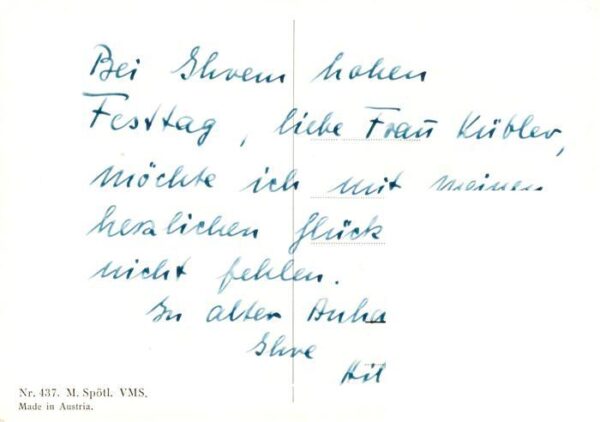 Bei Ihrem hohen
Festtag, liebe Frau Kübler,
möchte ich mit meinen
herzlichen Glück
nicht fehlen.
In alter Anha
Ihre
Hil
Nr. 437. M. Spötl. VMS.
Made in Austria.